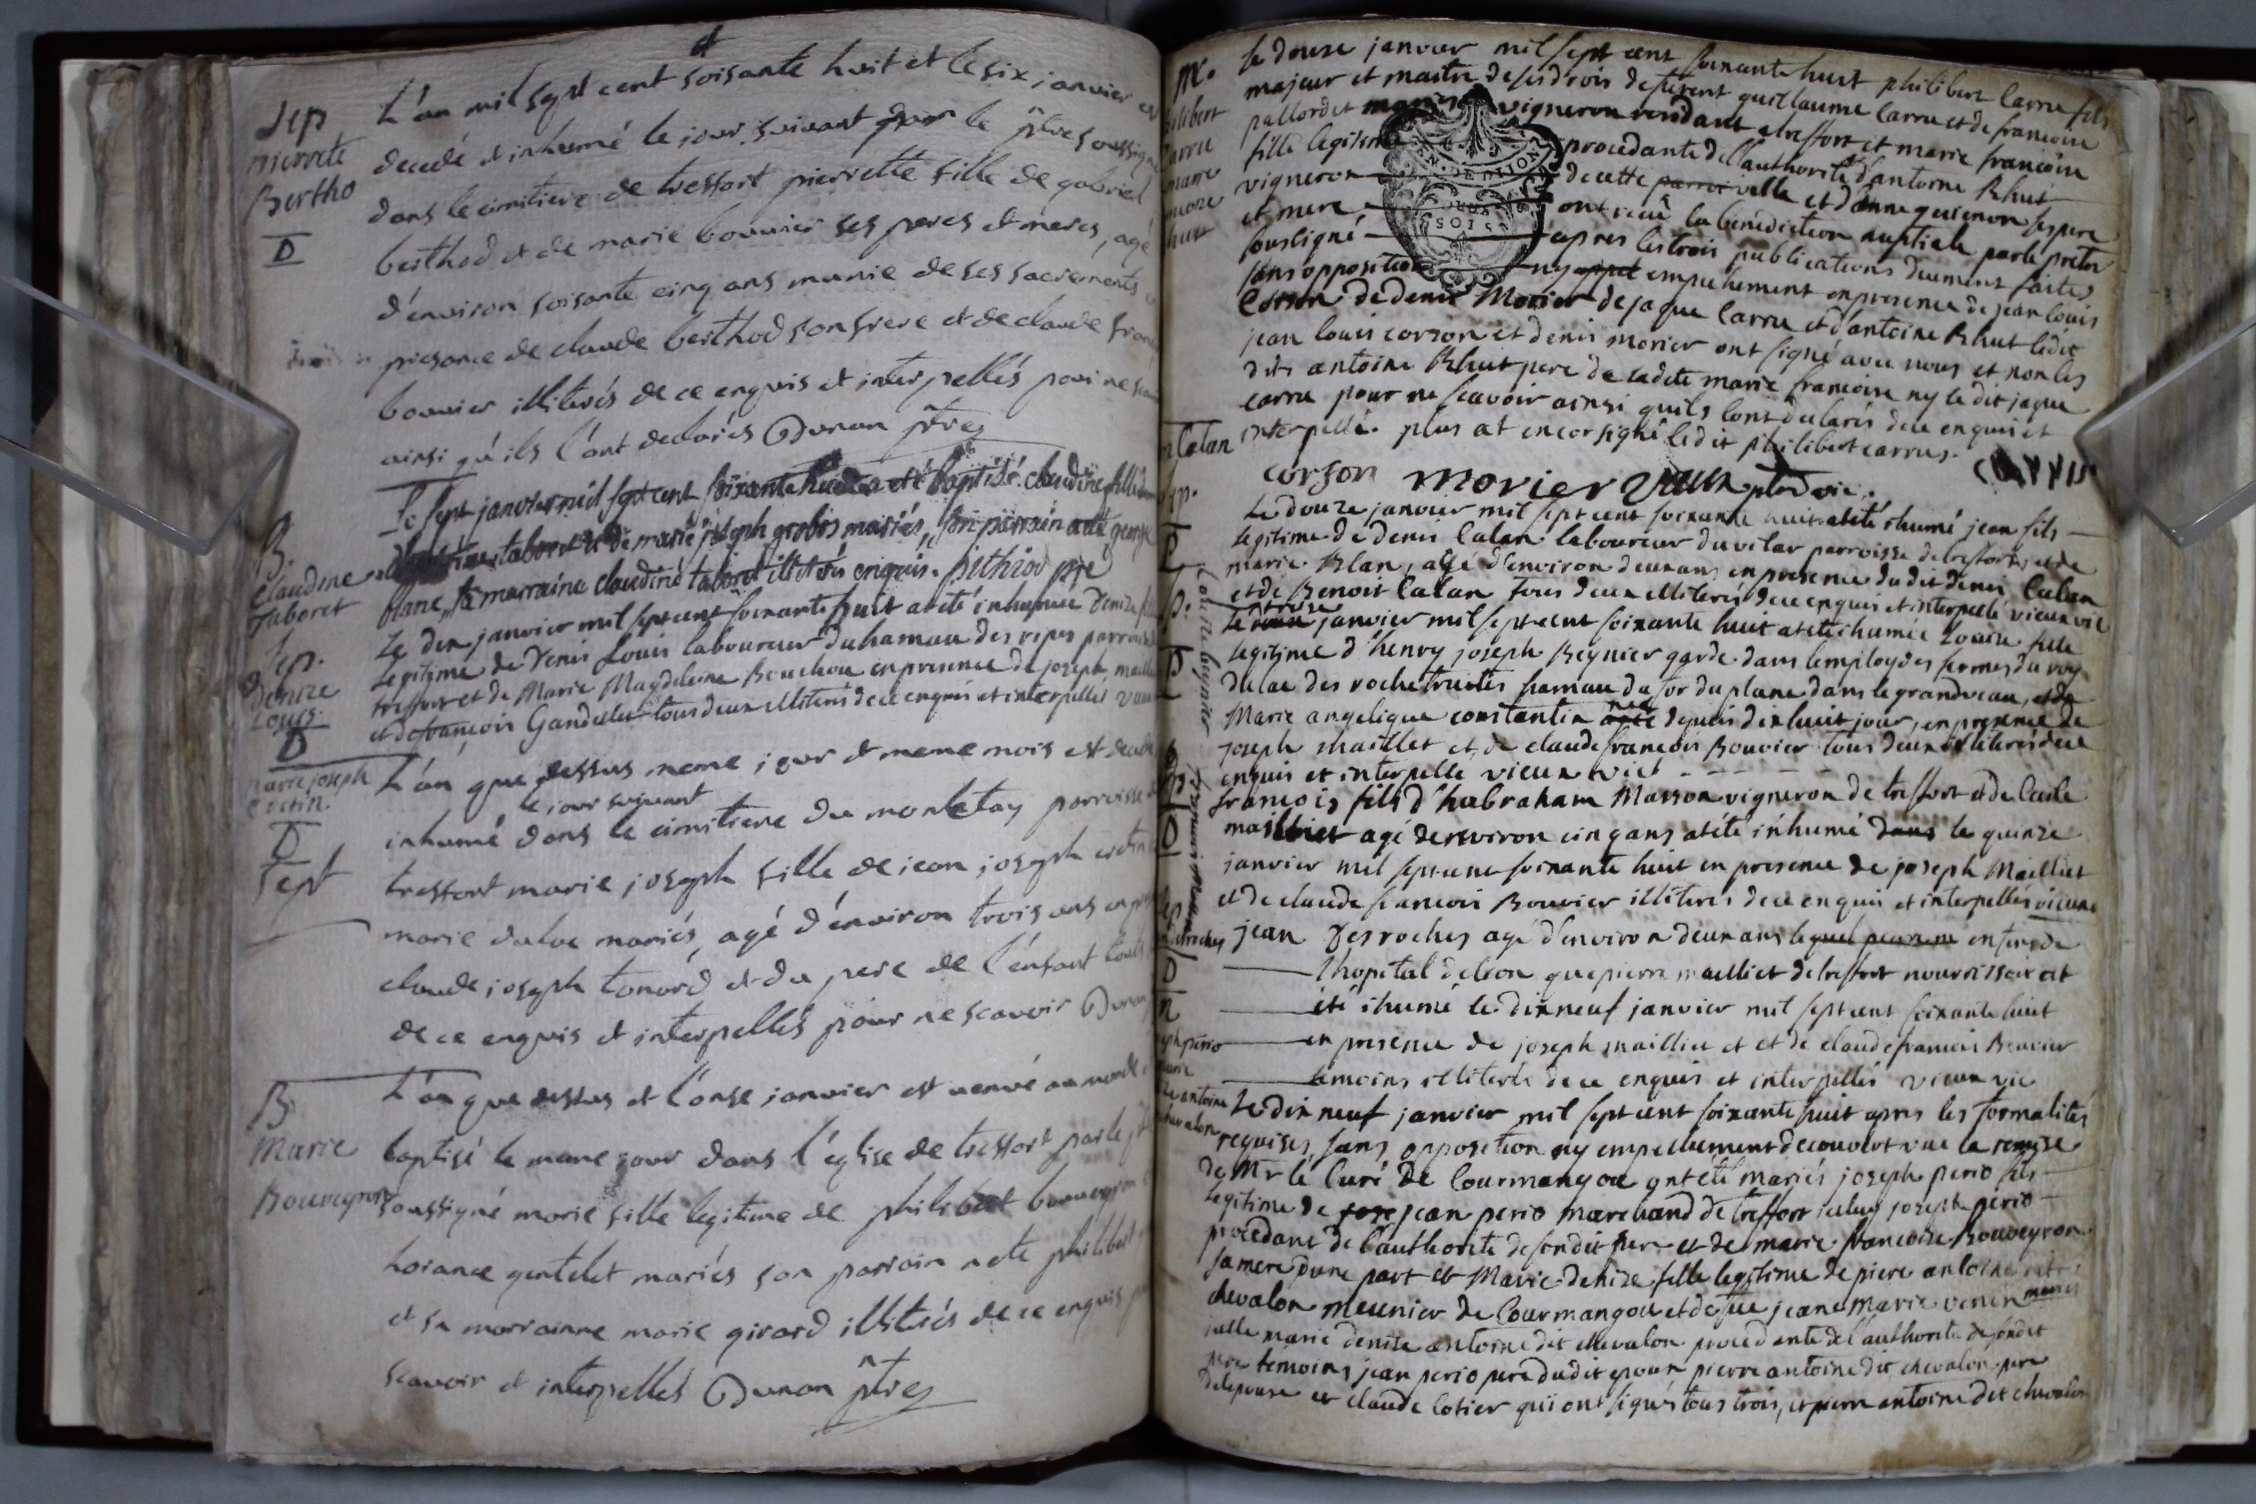 Sep
pierrete
Bertho
D
L'an mil sept cent soisante huit et le six janvier est
decedé et inhumé le jour suivant par le ptre soussigné
dans le cimitiere de tressort pierrette fille de gabriel
berthod et de marie bouvier ses peres et meres, agé
d'environ soisante cinq ans munie de ses sacrements
presance de claude berthod son frere et de claude
bouvier illiterés de ce enquis et interpellés pour ne
ainsi qu'ils l'ont declarés Dunan ptre
B.
Claudine
Taboret
Le sept janvier mil sept cent soixante huit a eté baptisé claudine fille
taboret et de marie joseph grobos mariés, son parrain a eté george
blanc, sa marraine claudine taboret illiterés enquis. pithiod ptre
Sep.
Denize
Louis
D
Le dix janvier mil sept cent soixante huit a eté inhumée Denize
Legitime de Denis Louis laboureur du hamau des ripes parroisse
tresfort et de Marie Magdeleine Bouchou en presence de joseph
et de francois Gandelet tous deux illiterés de ce enquis et interpellés
marie joseph
D
Sept
L'an que dessus meme jour et meme mois est
le jour suivant
inhumé dans le cimitiere du montetay parroisse
tressort marie joseph fille de jean joseph
marie mariés, agé d'environ trois ans
claude joseph tonard et du pere de l'enfant
de ce enquis et interpellés pour ne scavoir Dunan
B
Marie
Bouveyron
L'an que dessus et l'onse janvier est
baptisé le meme jour dans l'église de tressort par le
soussigné marie fille legitime de philibert bouveyron
horance gentelet mariés son parrain a eté philibert
et sa marrainne marie girard illiterés de ce enquis
scavoir et interpellés Dunan ptre
M.
Le douze janvier mil sept cent soixante huit philibert Carru fils
majeur et maitre de ses drois de furent guillaume Carru et de francoise
pallordet vigneron residant a tresfort et marie francoise
fille legitime procedante de l'authorité d'antoine Rhut
vigneron de cette ville et d'anne guienon ses pere
et mere ont recû la benediction nuptiale par le pretre
soussigné apres les trois publications duement faites
sans opposition ny empechement en presence de jean louis
Corson de denis Morier de jaque Carru et d'antoine Rhut ledit
jean louis corson et denis morier ont signé avec nous et non les
dits antoine Rhut pere de ladite marie francoise ny le dit jaque
carru pour ne scavoir ainsi quils lont declarés de ce enquis et
interpellé. plus at encor signé ledit philibert carru.
corson morier
Calan
D
Le douze janvier mil sept cent soixante huit at eté ihumé jean fils
legitime de denis Calan laboureur du vilar parroisse de tresfort, et de
marie Blan, agé d'environ deux ans en presence du dit denis Calan
et de Benoit Calan tous deux illiterés de ce enquis et interpellé vieux vic
Louise begnier
D
treize
Le janvier mil sept cent soixante huit at eté ihumée Louise fille
legitime d'henry joseph Beynier garde dans l'employ des fermes du roy
du lac des roche truites hamau du for du plane dans le grandvau, et de
Marie angelique constantin née depuis dix huit jour, en presence de
joseph maillet et de claude francois Bouvier tous deux illiterés de ce
enquis et interpellé vieux vict
D
francois fils d'habraham Masson vigneron de tresfort et de Cecile
agé denviron cinq ans at eté inhumé le quinze
janvier mil sept cent soixante huit en presence de joseph Mailliet
et de claude francois Bouvier illiterés de ce enquis et interpellés vieux
Sep
desroches
D
jean Desroches agé d'environ deux ans enfens de
l'hopital de lion que pierre mailliet de tresfort nourrissoit at
été ihumé le dix neuf janvier mil sept cent soixante huit
en presence de joseph mailliet et de claude francois Bouvier
temoins illiterés de ce enquis et interpellés vieux vic
Le dix neuf janvier mil sept cent soixante huit apres les formalités
requises, sans opposition ny empechement decouvert vue la remise
de Mr le Curé de Courmangou ont été mariés joseph perio fils
legitime de jean perio marchand de tresfort iceluy joseph perio
procedant de l'authorité de son dit pere et de marie francoise Bouveyron
sa mere d'une part et Marie denize fille legitime de piere antoine
chevalon meunier de Courmangou et de fue jeane Marie
marie denize antoine dit chevalon procedante de l'authorité de son dit
pere temoins jean perio pere du dit epoux pierre antoine dit chevalon pere
de lepouse et claude Cotier qui ont signés tous trois, et pierre antoine dit chevalon